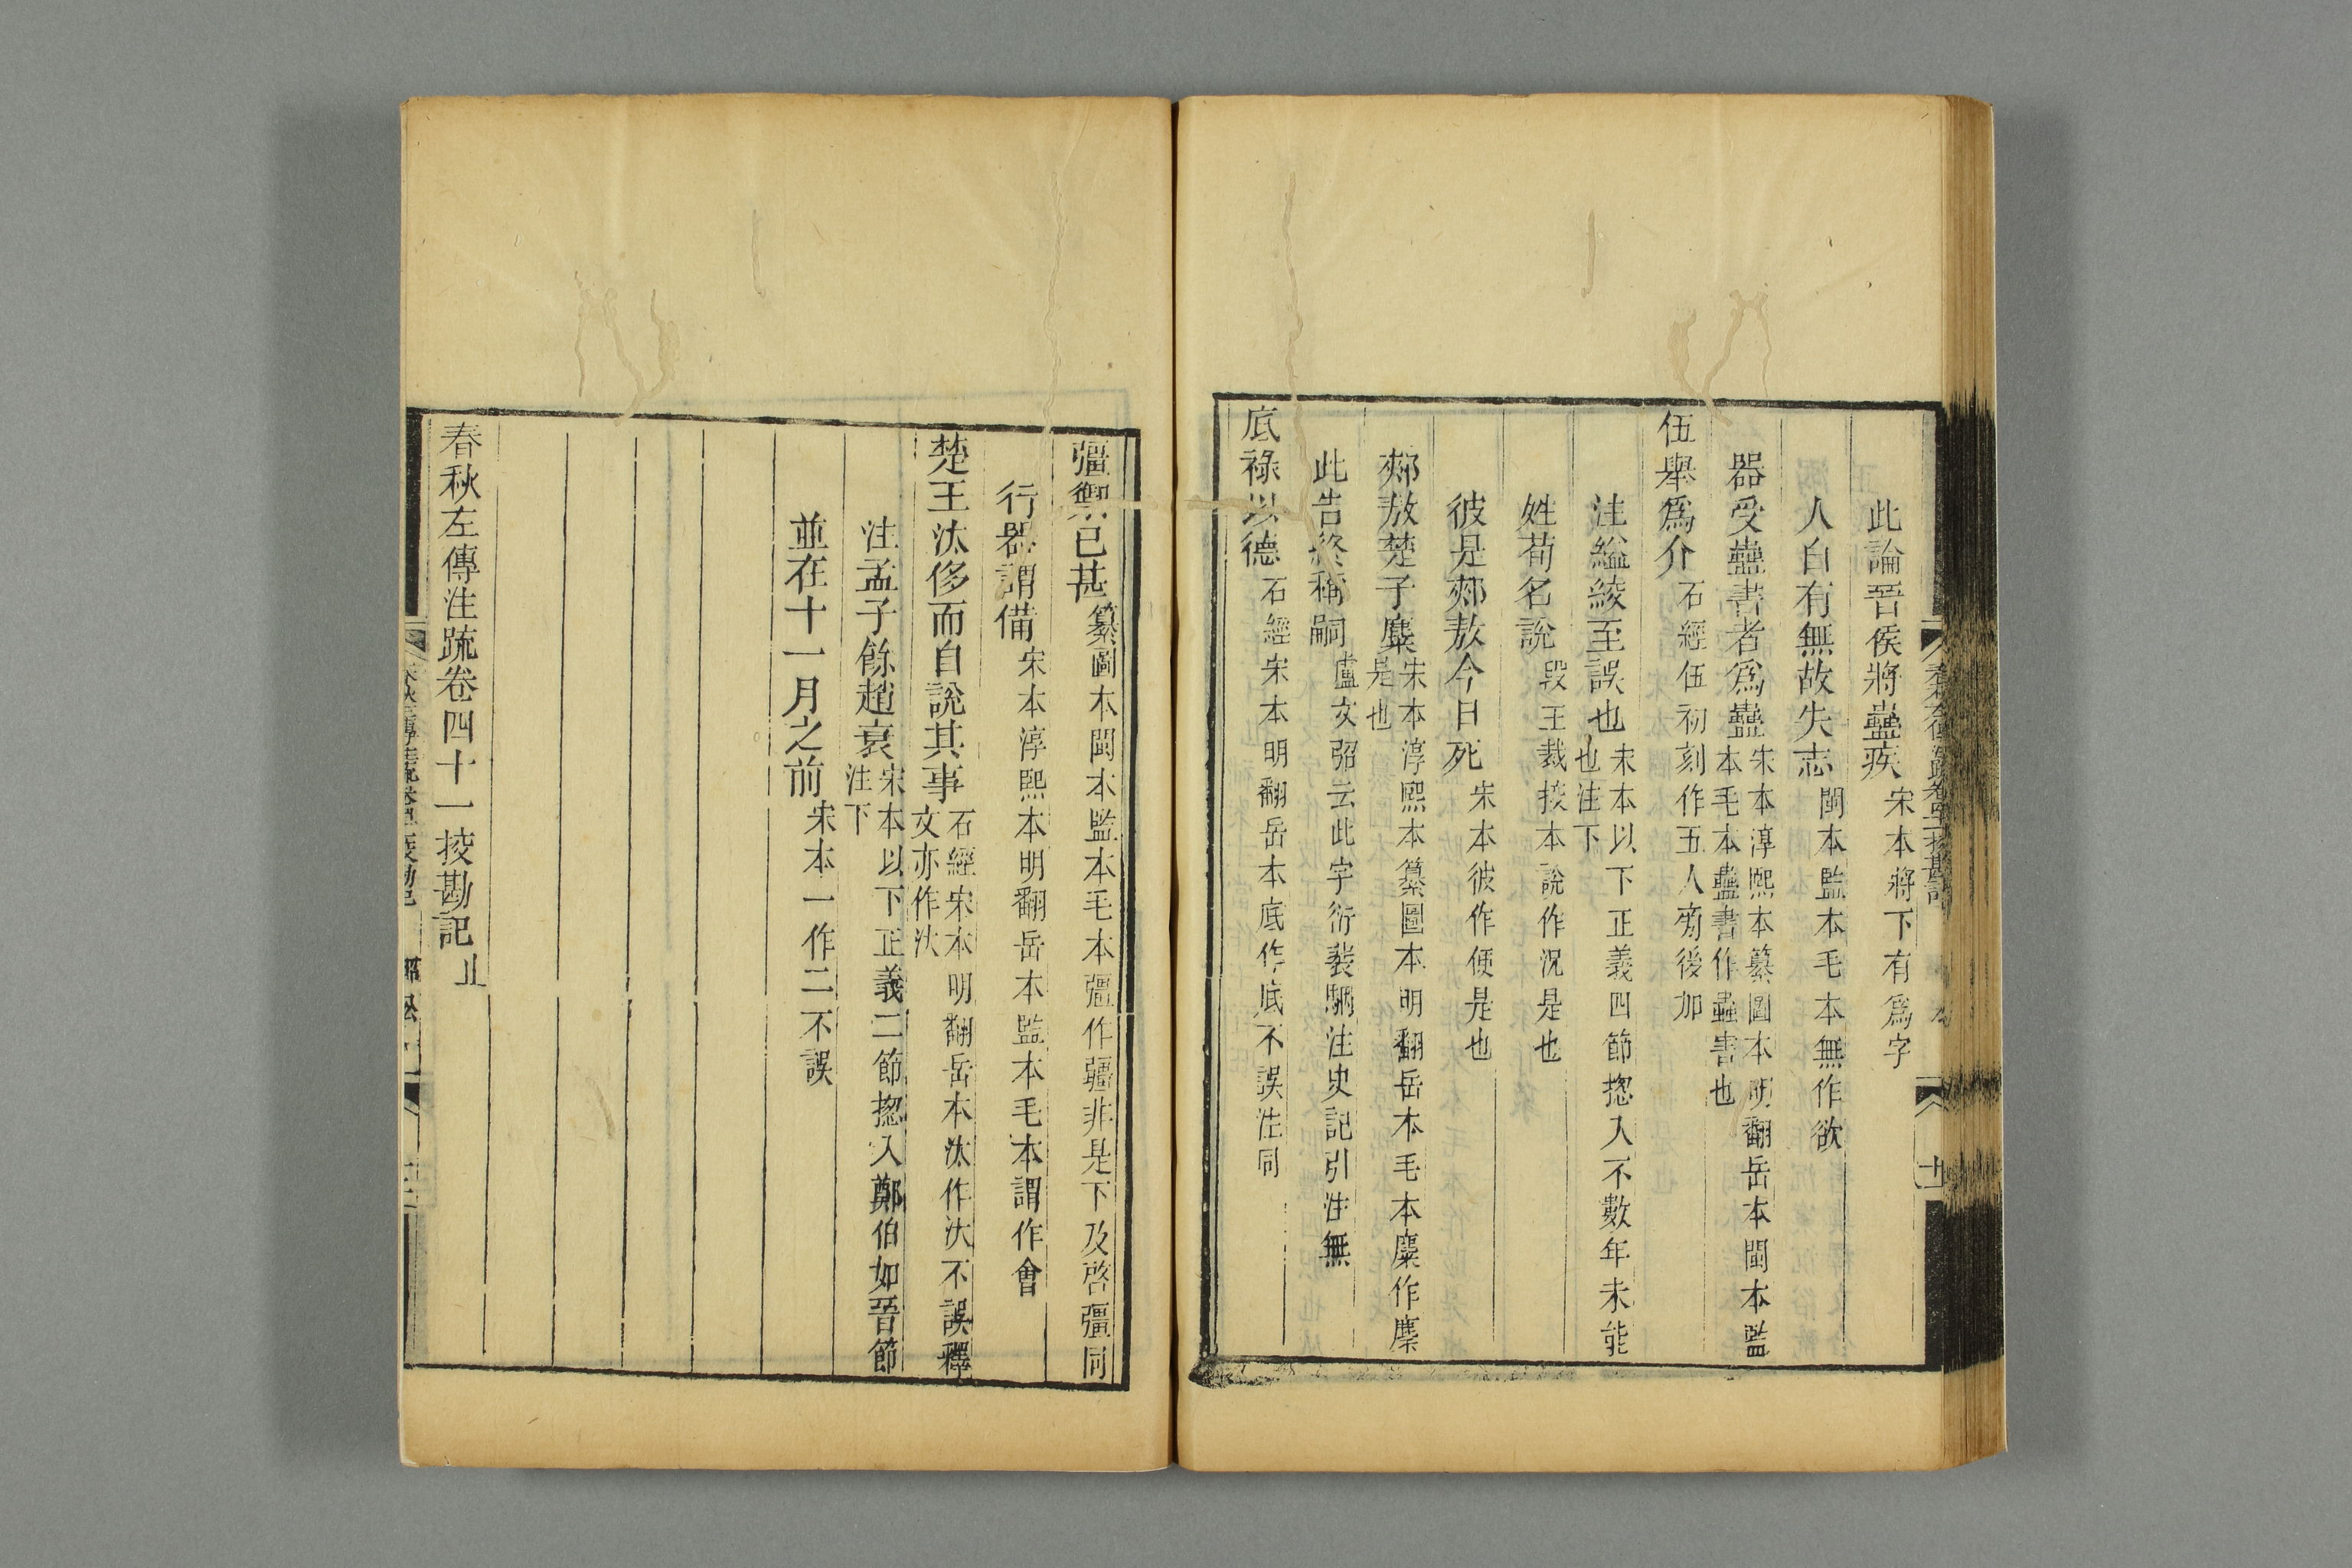 此論晋侯將蠱疾宋本將下有爲字
人自有無故失志閩本監本毛本無作欲
器受蠱害者爲蠱宋本淳熙本纂圖本明翻岳本閩本監本毛本蠱書作蟲害也
伍舉爲介石經伍初刻作五人旁後加
注縊絞至誤也宋本以下正義四節揔入不數年未能也注下
姓荀名說段玉裁挍本說作況是也
彼是郟敖今日死宋本彼作便是也
郟敖楚子麋宋本淳熙本纂圖本明翻岳本毛本麋作麇是也
此告終稱嗣盧文弨云此字衍裴駰注史記引注無
底祿以德石經宋本明翻岳本底作厎不誤注同
彊禦已甚纂圖本閩本監本毛本彊作疆非是下及啓彊同
行器謂備宋本淳熙本明翻岳本監本毛本謂作會
楚王汰侈而自說其事石經宋本明翻岳本汰作汏不誤釋文亦作汏
注孟子餘趙衰宋本以下正義二節揔入鄭伯如晉節注下
並在十一月之前宋本一作二不誤
春秋左傳注疏卷四十一挍勘記止